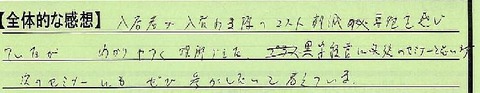 【全体的な感想】 入居者が入居する際のコスト軽減 の必要性を感じ
ていたが わかりやすく理解できた。 黒字経営に必須のセミナーと思います
次のセミナーにも ぜひ参加したいと考えています。